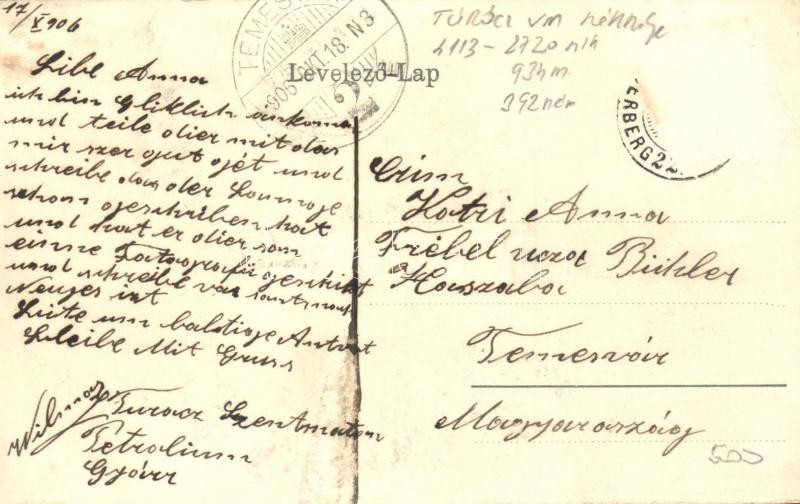 17/X 906
TEMES
906 OKT. 18. N3
Levelező-Lap
TÚRÓCZ VM
4113-2720 n/h
934 m.
392 ném
ERBERG 22
Libe Anna
ich bin Gliklich ankoman
und teile dier mit das
mir szer gut gét und
schreibe das der
schon geschriben hat
und hat er dier son
einne Fatografü geschikt
und schreibe vas sonst noch
Neuges ist
Lüte um baldige Antvort
Bleibe Mit Gruss
Wilmos
Turocz Szentmarton
Petrolium
Gyárr
Czim
Katri Anna
Frébel ucza Bühler
Haszaba
Temesvár
Magyaraszág
500